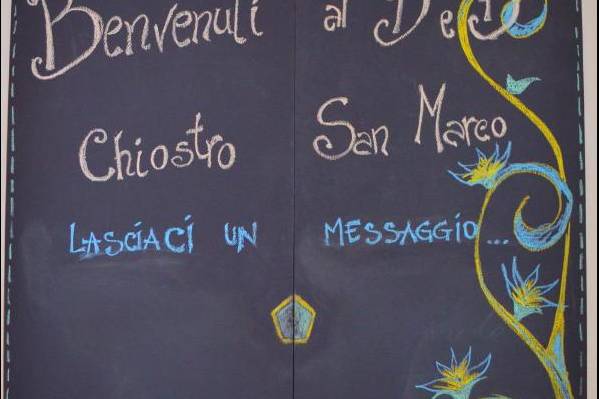 Benvenuti al De B
Chiostro San Marco
LASCIACI UN MESSAGGIO...